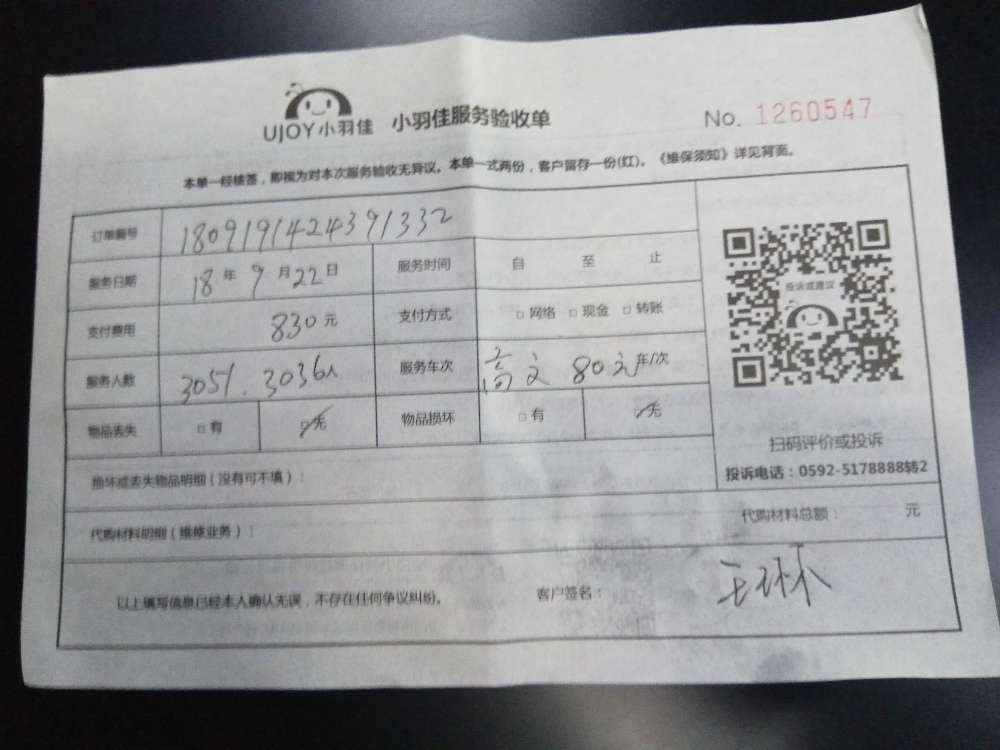 UJOY小羽佳 小羽佳服务验收单 No. 1260547
本单一经核签，即视为对本次服务验收无异议。本单一式两份，客户留存一份(红)。《维保须知》详见背面。
订单编号 1809191424391332
服务日期 18年9月22日 服务时间 自 至 止
支付费用 830元 支付方式 □网络 □现金 □转账
服务人数 3051.3036人 服务车次 80元 车/次
物品丢失 □有 □无 物品损坏 □有 □无
投诉或建议
扫码评价或投诉
投诉电话：0592-5178888转2
损坏或丢失物品明细（没有可不填）：
代购材料明细（维修业务）： 代购材料总额： 元
以上填写信息已经本人确认无误，不存在任何争议纠纷。 客户签名：